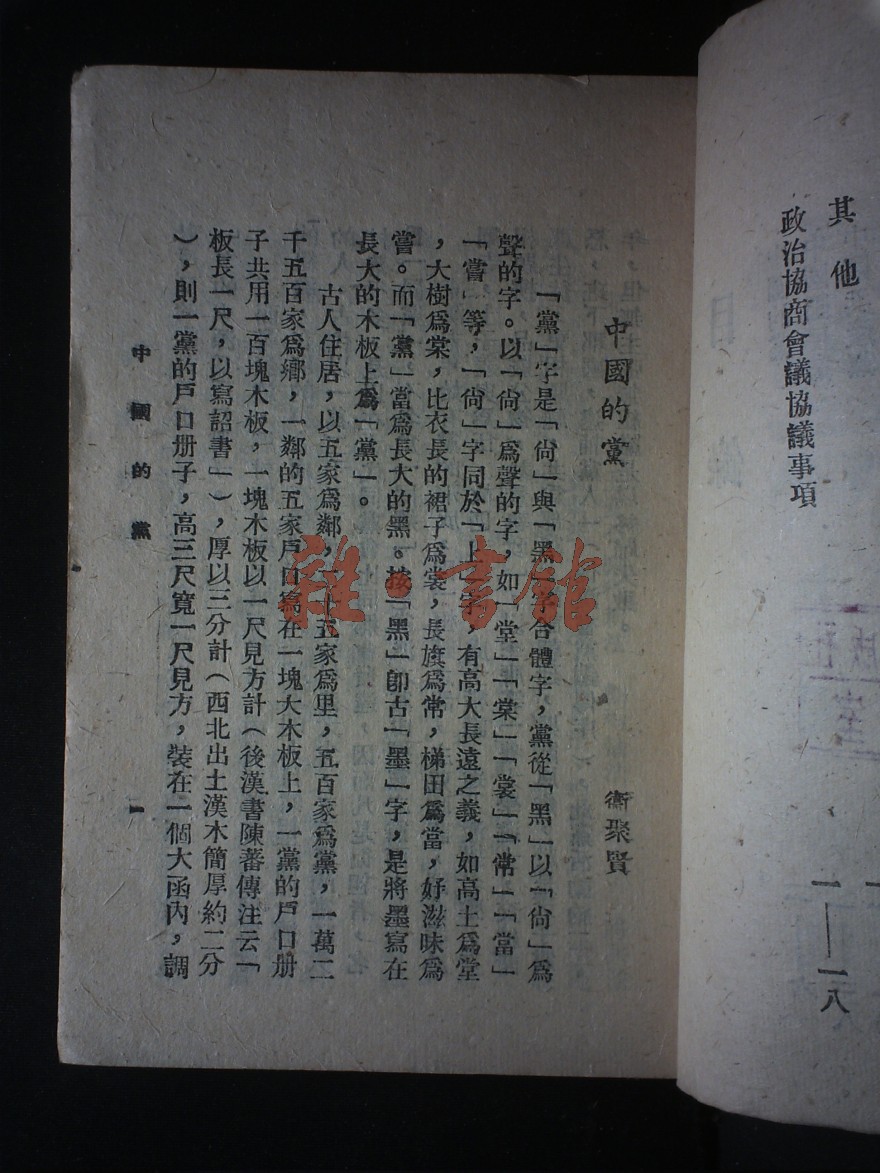 其他
政治協商會議協議事項
一——一八
中國的黨
衛聚賢
「黨」字是「尙」與「黑」字合體字，黨從「黑」以「尙」爲
聲的字。以「尙」爲聲的字，如「堂」「棠」「裳」「常」「當」
「嘗」等，「尙」字同於「上」字，有高大長遠之義，如高土爲堂
，大樹爲棠，比衣長的裙子爲裳，長旗爲常，梯田爲當，好滋味爲
嘗。而「黨」當爲長大的黑。按「黑」卽古「墨」字，是將墨寫在
長大的木板上爲「黨」。
古人住居，以五家爲鄰，二十五家爲里，五百家爲黨，一萬二
千五百家爲鄕，一鄰的五家戶口寫在一塊大木板上，一黨的戶口册
子共用一百塊木板，一塊木板以一尺見方計（後漢書陳蕃傳注云「
板長一尺，以寫詔書」），厚以三分計（西北出土漢木簡厚約二分
），則一黨的戶口册子，高三尺寬一尺見方，裝在一個大函內，調
中國的黨
一
雜·書館